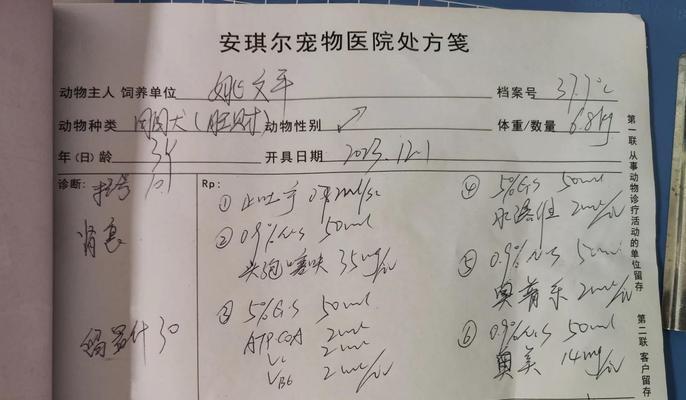 安琪尔宠物医院处方笺
动物主人 饲养单位 姚文平 档案号 37.7℃
动物种类 犬( 动物性别 ♂ 体重/数量 6.8kg
年(日)龄 3Y 开具日期 2023.12.1
诊断: Rp:
肾衰
30
① 止吐宁 /sc
② 0.9%NS 50ml
头孢噻呋 35mg/iv
③ 5%GS 50ml
ATP COA 2ml
Vc 2ml
VB6 2ml/iv
④ 5%GS 50ml
水溶性 2ml/iv
⑤ 0.9%NS 50ml
奥普乐 2ml/iv
⑥ 0.9%NS 50ml
奥美 14mg/iv
第一联 从事动物诊疗活动的单位留存
第二联 客户留存